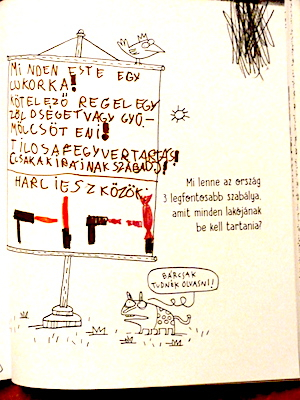 MINDEN ESTE EGY
CUKORKA!
KÖTELEZŐ REGEL EGY
ZÖLDSÉGET VAGY GYÜ-
MÖLCSÖT ENI!
TILOS A FEGYVERTARTÁS!
CSAK A KIRÁJNAK SZABAD!
HARCI ESZKÖZÖK:
Mi lenne az ország
3 legfontosabb szabálya,
amit minden lakójának
be kell tartania?
BÁRCSAK
TUDNÉK OLVASNI!